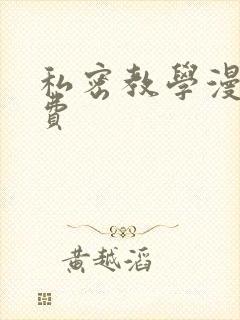 私密教學漫
費
黃越滔